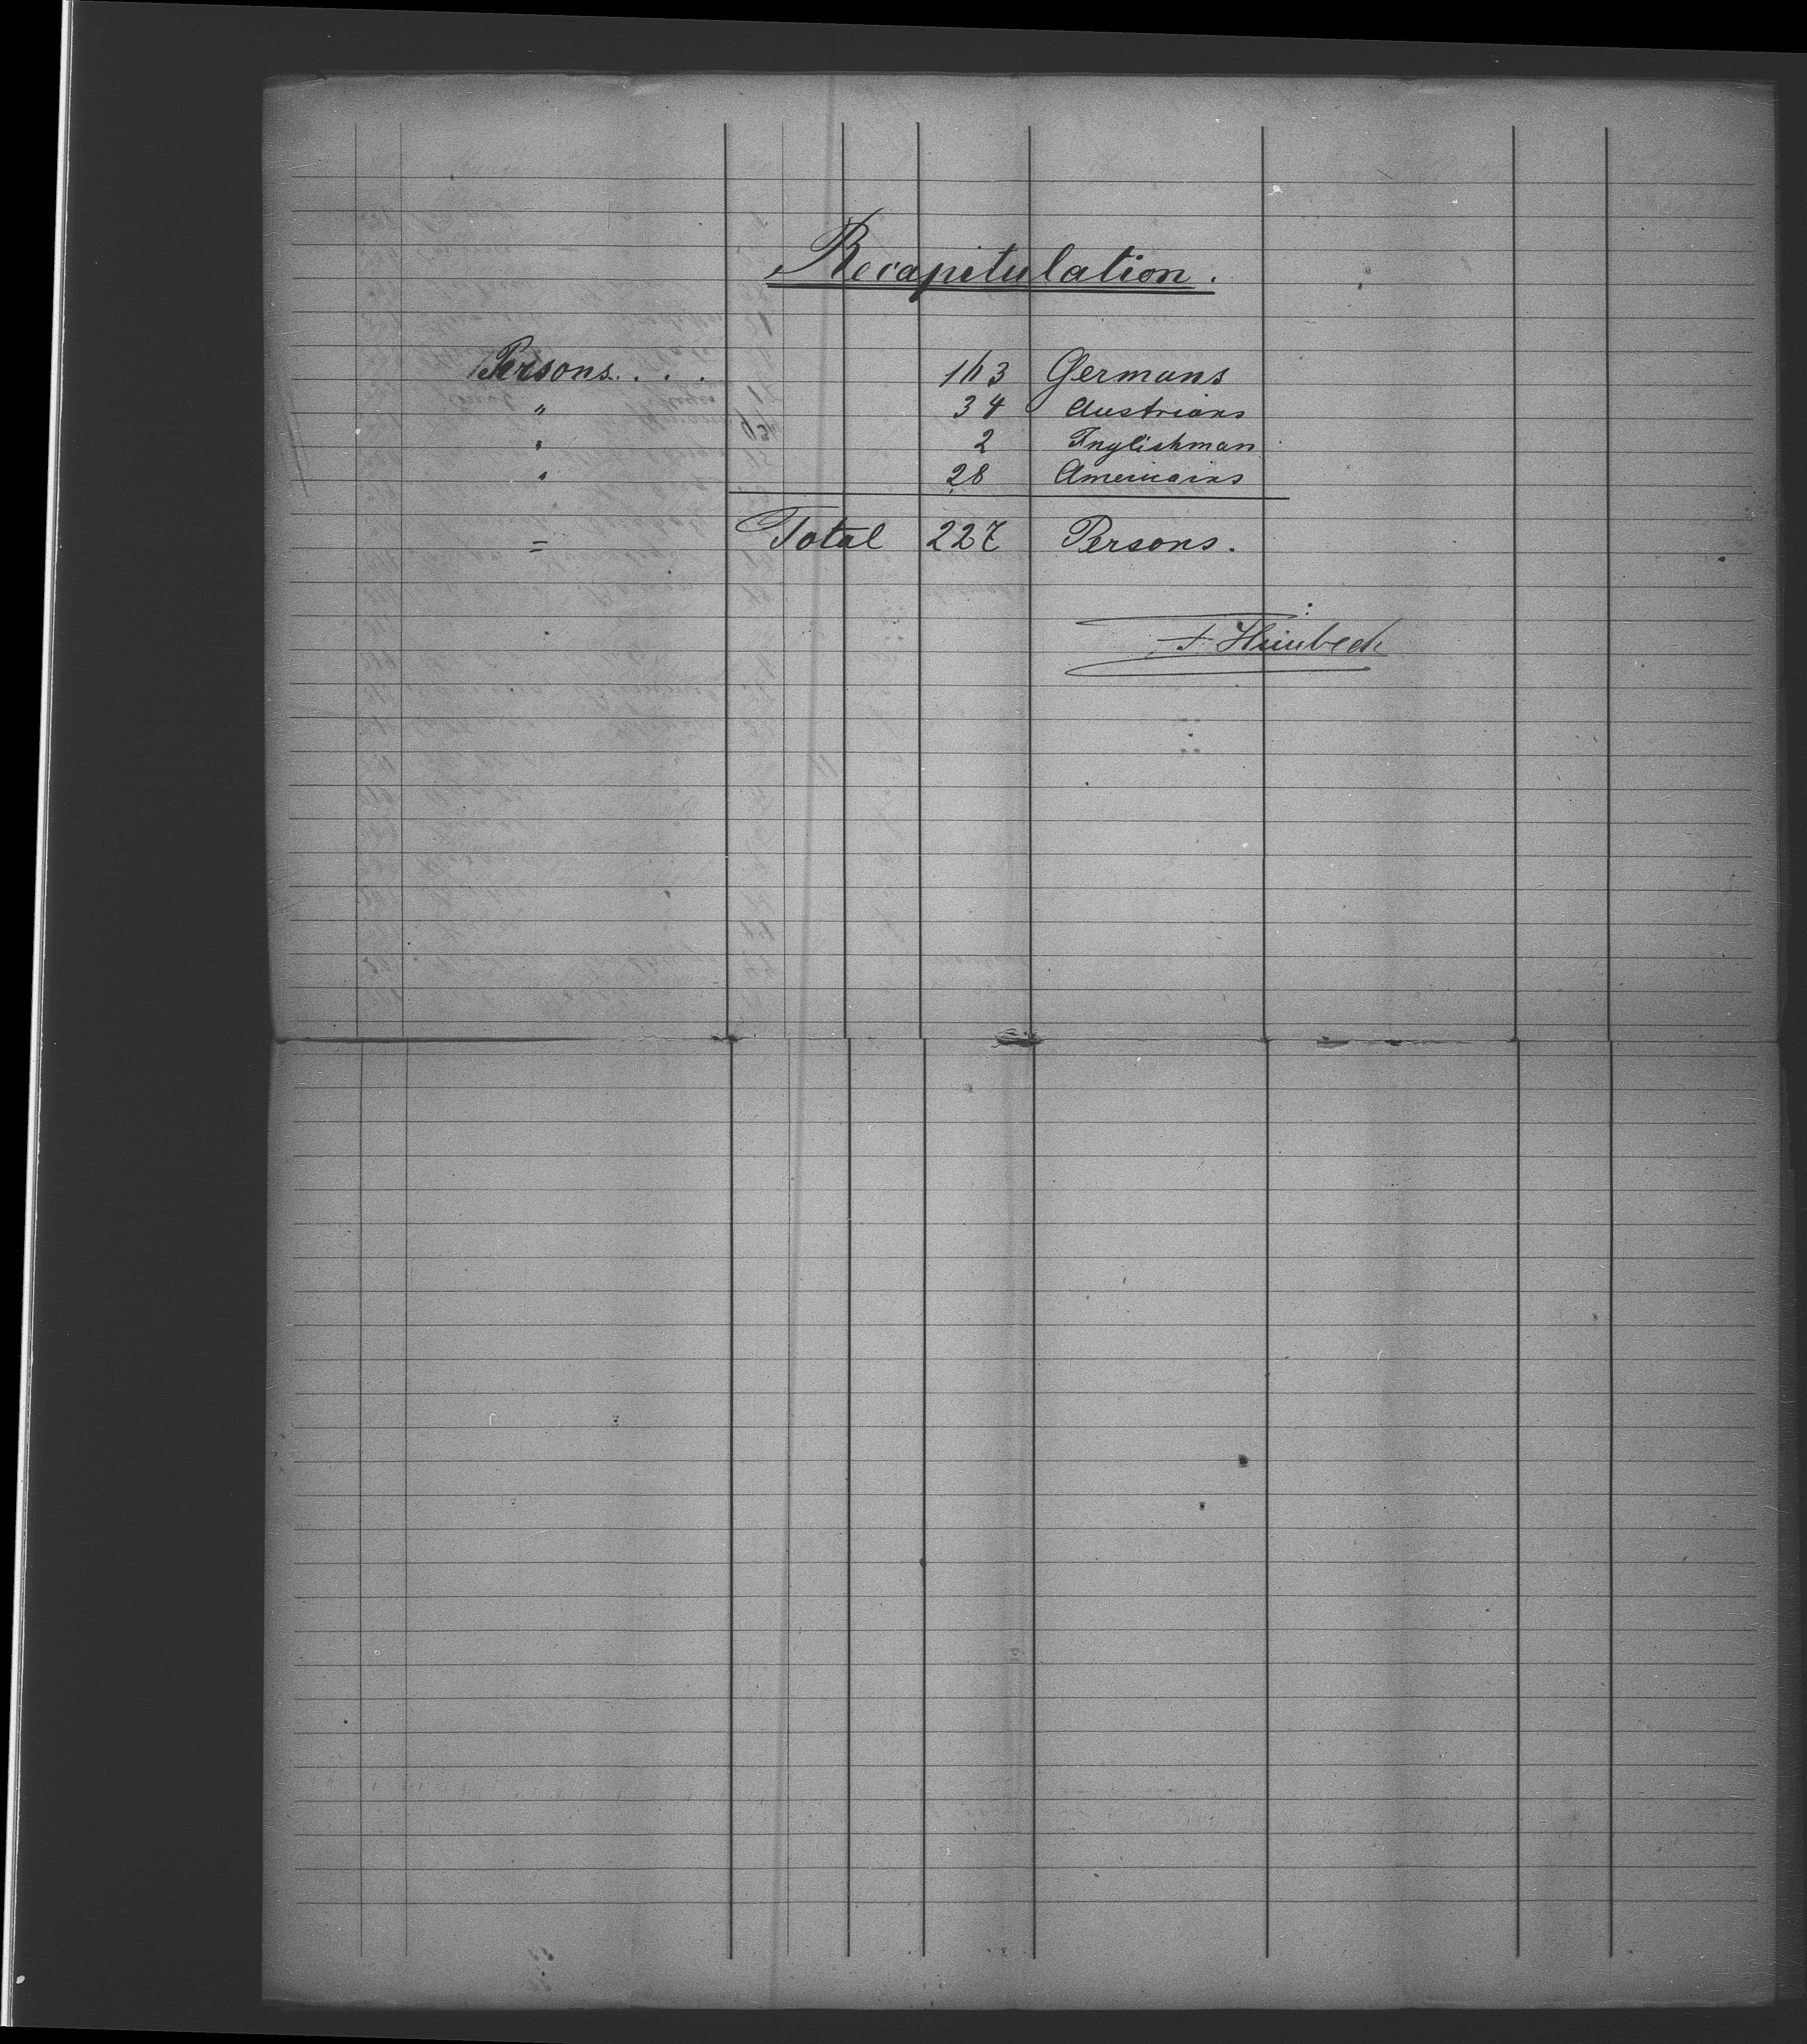 Recapitulation.
Persons. . . 163 Germans
" 34 Austrians
" 2 Inglishman
" 28 Americains
= Total 227 Persons.